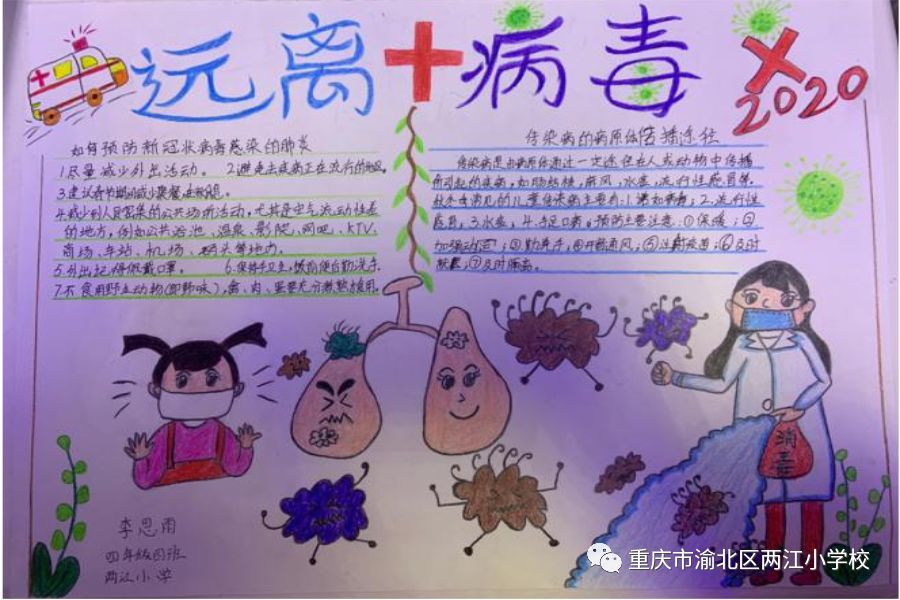 远离 病毒
2020
如何预防新冠状病毒感染的肺炎
1.尽量减少外出活动。 2.避免去疾病正在流行的地区。
3.建议春节期间减少聚餐
4.减少到人员密集的公共场所活动,尤其是空气流动性差
的地方,例如公共浴池、温泉、影院、网吧、KTV、
商场、车站、机场、码头等地方。
5.外出 佩戴口罩。 6.保持手卫生,饭前便后勤洗手。
7.不食用野生动物(即野味),禽、肉、蛋要充分煮熟食用。
传染病的病原体 传播途径
传染病是由病原体通过一定途径在人或动物中传播
所引起的疾病,如肺结核,麻风,水痘,流行性感冒等。
秋冬 常见的儿童传染病主要有:1. 2.流行性
感冒,3.水痘,4.手足口病。预防主要注意:①保暖;②
加强 ;③勤洗手,④开窗通风;⑤注射疫苗;⑥及时
就医;⑦及时隔离。
消
毒
李思雨
四年级四班
两江小学
重庆市渝北区两江小学校